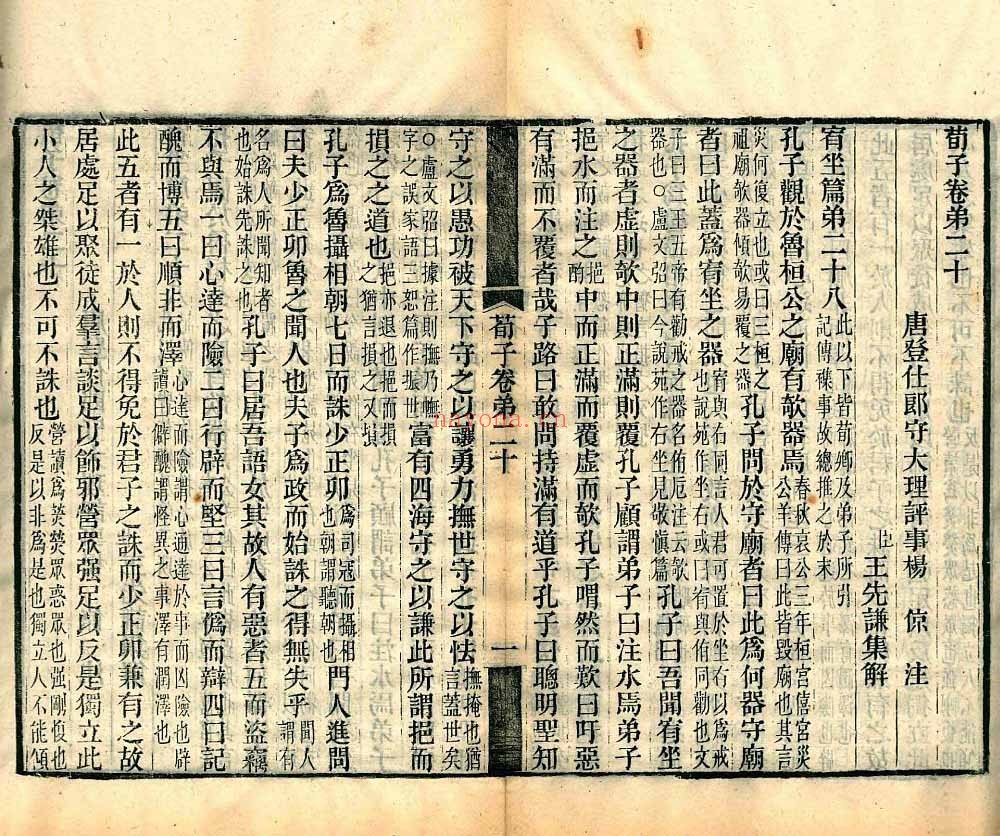 荀子卷弟二十
唐登仕郎守大理評事楊 倞 注
王先謙集解
宥坐篇弟二十八此以下皆荀卿及弟子所引記傳襍事故總推之於末
孔子觀於魯桓公之廟有欹器焉春秋哀公三年桓宮僖宮災公羊傳曰此皆毀廟也其言
災何復立也或曰三桓之祖廟欹器傾欹易覆之器孔子問於守廟者曰此爲何器守廟
者曰此蓋爲宥坐之器宥與右同言人君可置於坐右以爲戒也說苑作坐右或曰宥與侑同勸也文
子曰三王五帝有勸戒之器名侑卮注云欹器也○盧文弨曰今說苑作右坐見敬愼篇孔子曰吾聞宥坐
之器者虛則欹中則正滿則覆孔子顧謂弟子曰注水焉弟子
挹水而注之挹酌中而正滿而覆虛而欹孔子喟然而歎曰吁惡
有滿而不覆者哉子路曰敢問持滿有道乎孔子曰聰明聖知
荀子卷弟二十
一
守之以愚功被天下守之以讓勇力撫世守之以怯撫掩也猶言蓋世矣
○盧文弨曰據注則撫乃幠字之誤家語三恕篇作振世富有四海守之以謙此所謂挹而
損之之道也挹亦退也挹而損之猶言損之又損
孔子爲魯攝相朝七日而誅少正卯爲司寇而攝相也朝謂聽朝也門人進問
曰夫少正卯魯之聞人也夫子爲政而始誅之得無失乎聞人謂有
名爲人所聞知者也始誅先誅之也孔子曰居吾語女其故人有惡者五而盜竊
不與焉一曰心達而險二曰行辟而堅三曰言僞而辯四曰記
醜而博五曰順非而澤心達而險謂心通達於事而凶險也辟讀曰僻醜謂怪異之事澤有潤澤也
此五者有一於人則不得免於君子之誅而少正卯兼有之故
居處足以聚徒成羣言談足以飾邪營眾强足以反是獨立此
小人之桀雄也不可不誅也營讀爲熒熒眾惑眾也强剛愎也反是以非爲是也獨立人不能傾
nayona.cn